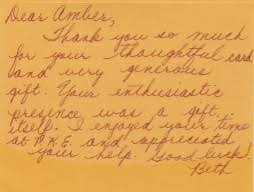 Dear Amber,
Thank you so much
for your thoughtful card
and very generous
gift. Your enthusiastic
presence was a gift
itself. I enjoyed your time
at P.K.E. and appreciated
your help. Good luck!
Beth